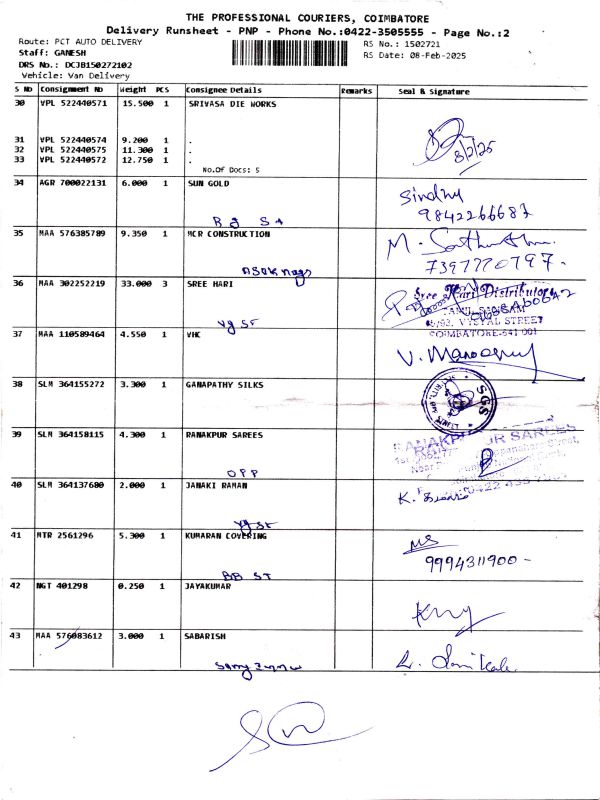 THE PROFESSIONAL COURIERS, COIMBATORE
Delivery Runsheet - PNP - Phone No.:0422-3505555 - Page No.:2
Route: PCT AUTO DELIVERY
RS No.: 1502721
Staff: GANESH
RS Date: 08-Feb-2025
DRS No.: DCJB150272102
Vehicle: Van Delivery
S No Consignment No Weight PCS Consignee Details Remarks Seal & Signature
30 VPL 522440571 15.500 1 SRIVASA DIE WORKS
31 VPL 522440574 9.200 1 .
32 VPL 522440575 11.300 1 .
33 VPL 522440572 12.750 1 .
8/2/25
No.Of Docs: 5
34 AGR 700022131 6.000 1 SUN GOLD
Sindhu
9842266687
R J St
35 MAA 576385789 9.350 1 MCR CONSTRUCTION
7397770797-
ASOK nagr
36 MAA 302252219 33.000 3 SREE HARI
Sree Hari Distributors
VYSYAL STREET
COIMBATORE-641 001
Vy St
37 MAA 110589464 4.550 1 VHC
38 SLM 364155272 3.300 1 GANAPATHY SILKS
SGS
39 SLM 364158115 4.300 1 RANAKPUR SAREES
OPP
40 SLM 364137680 2.000 1 JANAKI RAMAN
Vy St
41 MTR 2561296 5.300 1 KUMARAN COVERING
MS
9994311900-
BB ST
42 NGT 401298 0.250 1 JAYAKUMAR
43 MAA 576083612 3.000 1 SABARISH